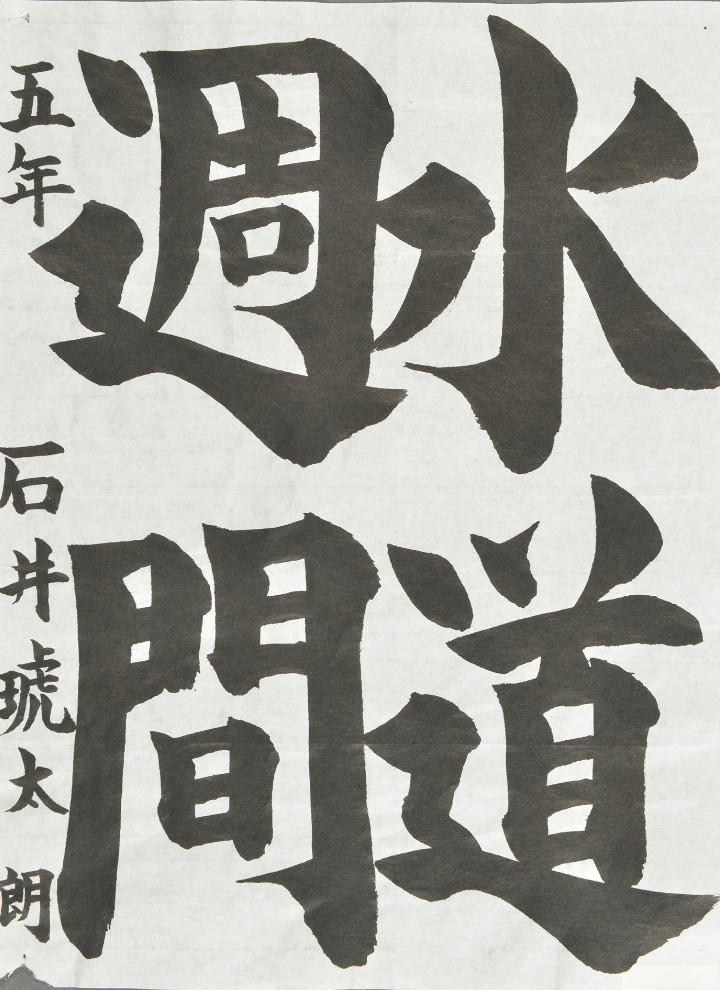 水道
週間
五年 石井琥太朗